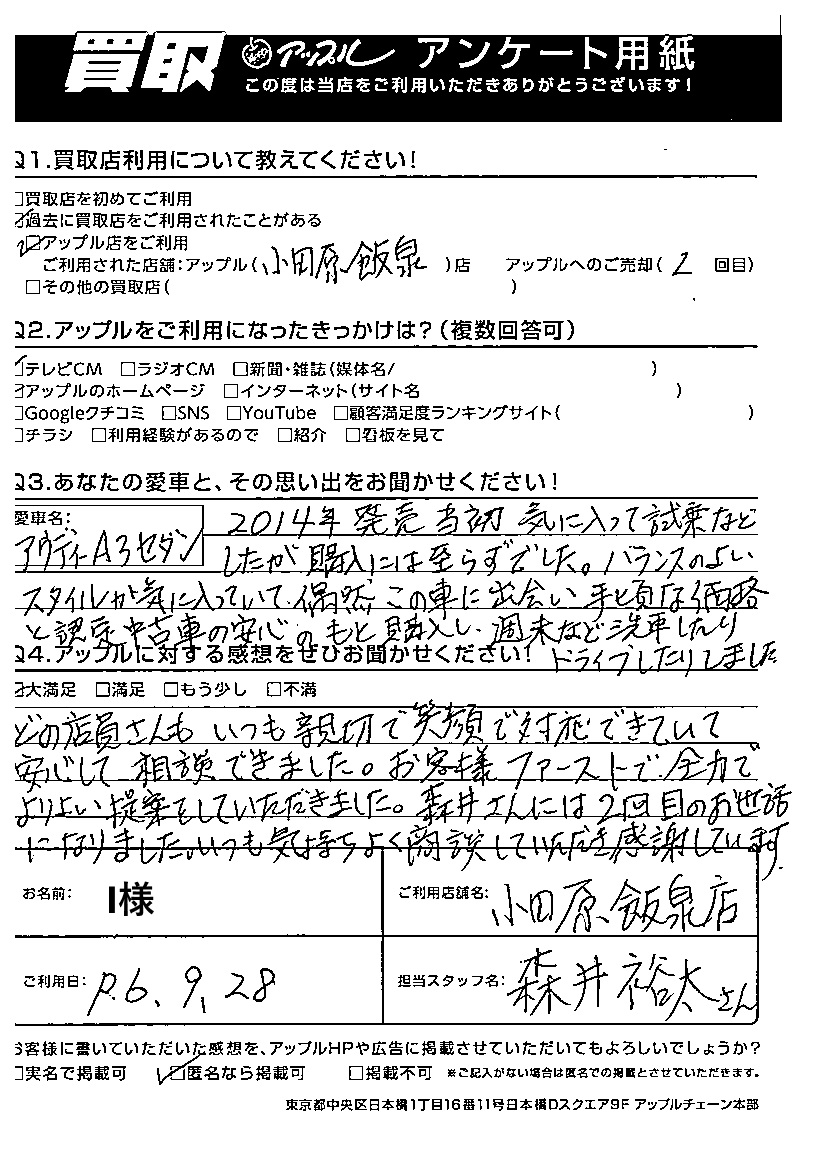 買取 アップル アンケート用紙
この度は当店をご利用いただきありがとうございます!
Q1.買取店利用について教えてください!
□買取店を初めてご利用
☑過去に買取店をご利用されたことがある
☑アップル店をご利用
ご利用された店舗:アップル(小田原飯泉)店 アップルへのご売却(2 回目)
□その他の買取店( )
Q2.アップルをご利用になったきっかけは?(複数回答可)
☑テレビCM □ラジオCM □新聞・雑誌(媒体名/ )
☑アップルのホームページ □インターネット(サイト名 )
□Googleクチコミ □SNS □YouTube □顧客満足度ランキングサイト( )
□チラシ □利用経験があるので □紹介 □看板を見て
Q3.あなたの愛車と、その思い出をお聞かせください!
愛車名:
アウディーA3セダン
2014年 発売当初 気に入って試乗など
したが購入には至らずでした。バランスのよい
スタイルが気に入っていて、偶然 この車に出会い 手頃な価格
と認定中古車の安心のもと購入し、週末など洗車したり
ドライブしたりしました
Q4.アップルに対する感想をぜひお聞かせください!
☑大満足 □満足 □もう少し □不満
どの店員さんも いつも親切で笑顔で対応できていて
安心して 相談できました。お客様ファーストで全力で
よりよい提案をしていただきました。森井さんには2回目のお世話
になりました。いつも気持ちよく商談していただき感謝しています。
お名前: I様
ご利用店舗名: 小田原飯泉店
ご利用日: R.6、9、28
担当スタッフ名: 森井裕太さん
お客様に書いていただいた感想を、アップルHPや広告に掲載させていただいてもよろしいでしょうか?
□実名で掲載可 ☑匿名なら掲載可 □掲載不可 ※ご記入がない場合は匿名での掲載とさせていただきます。
東京都中央区日本橋1丁目16番11号日本橋Dスクエア9F アップルチェーン本部